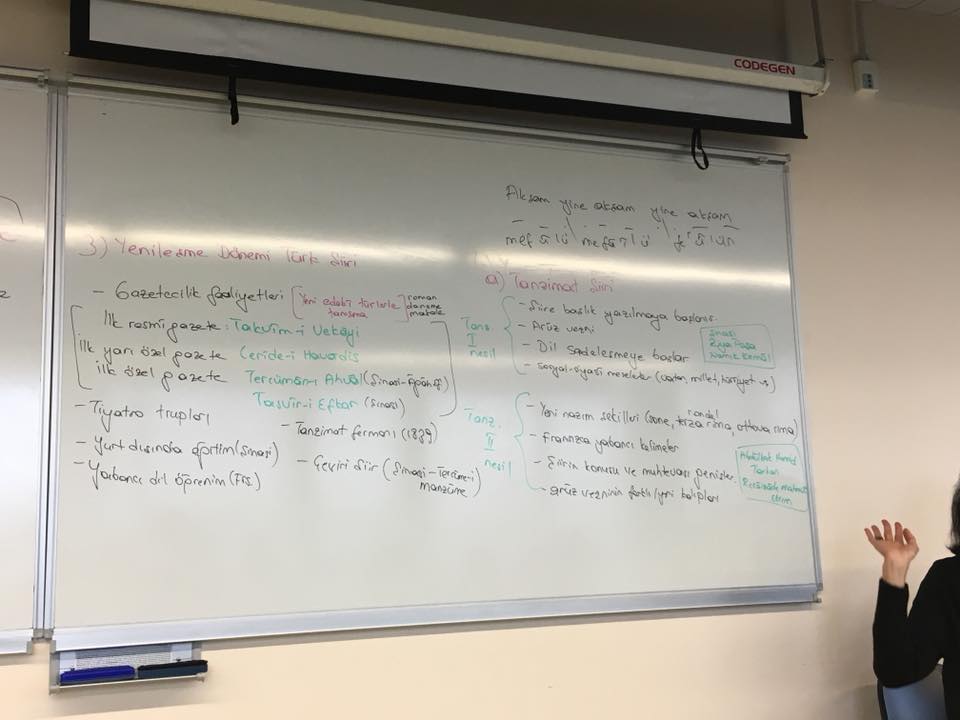 CODEGEN
Akşam yine akşam yine akşam
mef û lü mefâ î lü fe' û lün
3) Yenileşme Dönemi Türk Şiiri
- Gazetecilik faaliyetleri [Yeni edebî türlerle tanışma] roman deneme makale
İlk resmî gazete: Takvîm-i Vekâyi
İlk yarı özel gazete Ceride-i Havadis
ilk özel gazete Tercümân-ı Ahvâl (Şinasi-Âgâh Ef)
Tasvîr-i Efkar (Şinasi)
- Tiyatro trupları
- Yurt dışında eğitim (Şinasi)
- Yabancı dil öğrenim (Frs.)
- Tanzimat fermanı (1839)
- Çeviri Şiir (Şinasi-Tercüme-i Manzûme)
a) Tanzimat Şiiri
Tanz. I nesil
- Şiire başlık yazılmaya başlanır.
- Arûz vezni
- Dil sadeleşmeye başlar
- Sosyal-siyasi meseleler (vatan, millet, hürriyet vs)
Şinasi
Ziya Paşa
Namık Kemâl
Tanz. II nesil
- Yeni nazım şekilleri (sone, terza rima, ottova rima)
- Fransızca yabancı kelimeler
- Şiirin konusu ve muhtevası genişler.
- arûz vezninin farklı/yeni kalıpları
Abdülhak Hamid
Tarhan
Recâizâde Mahmut
Ekrem